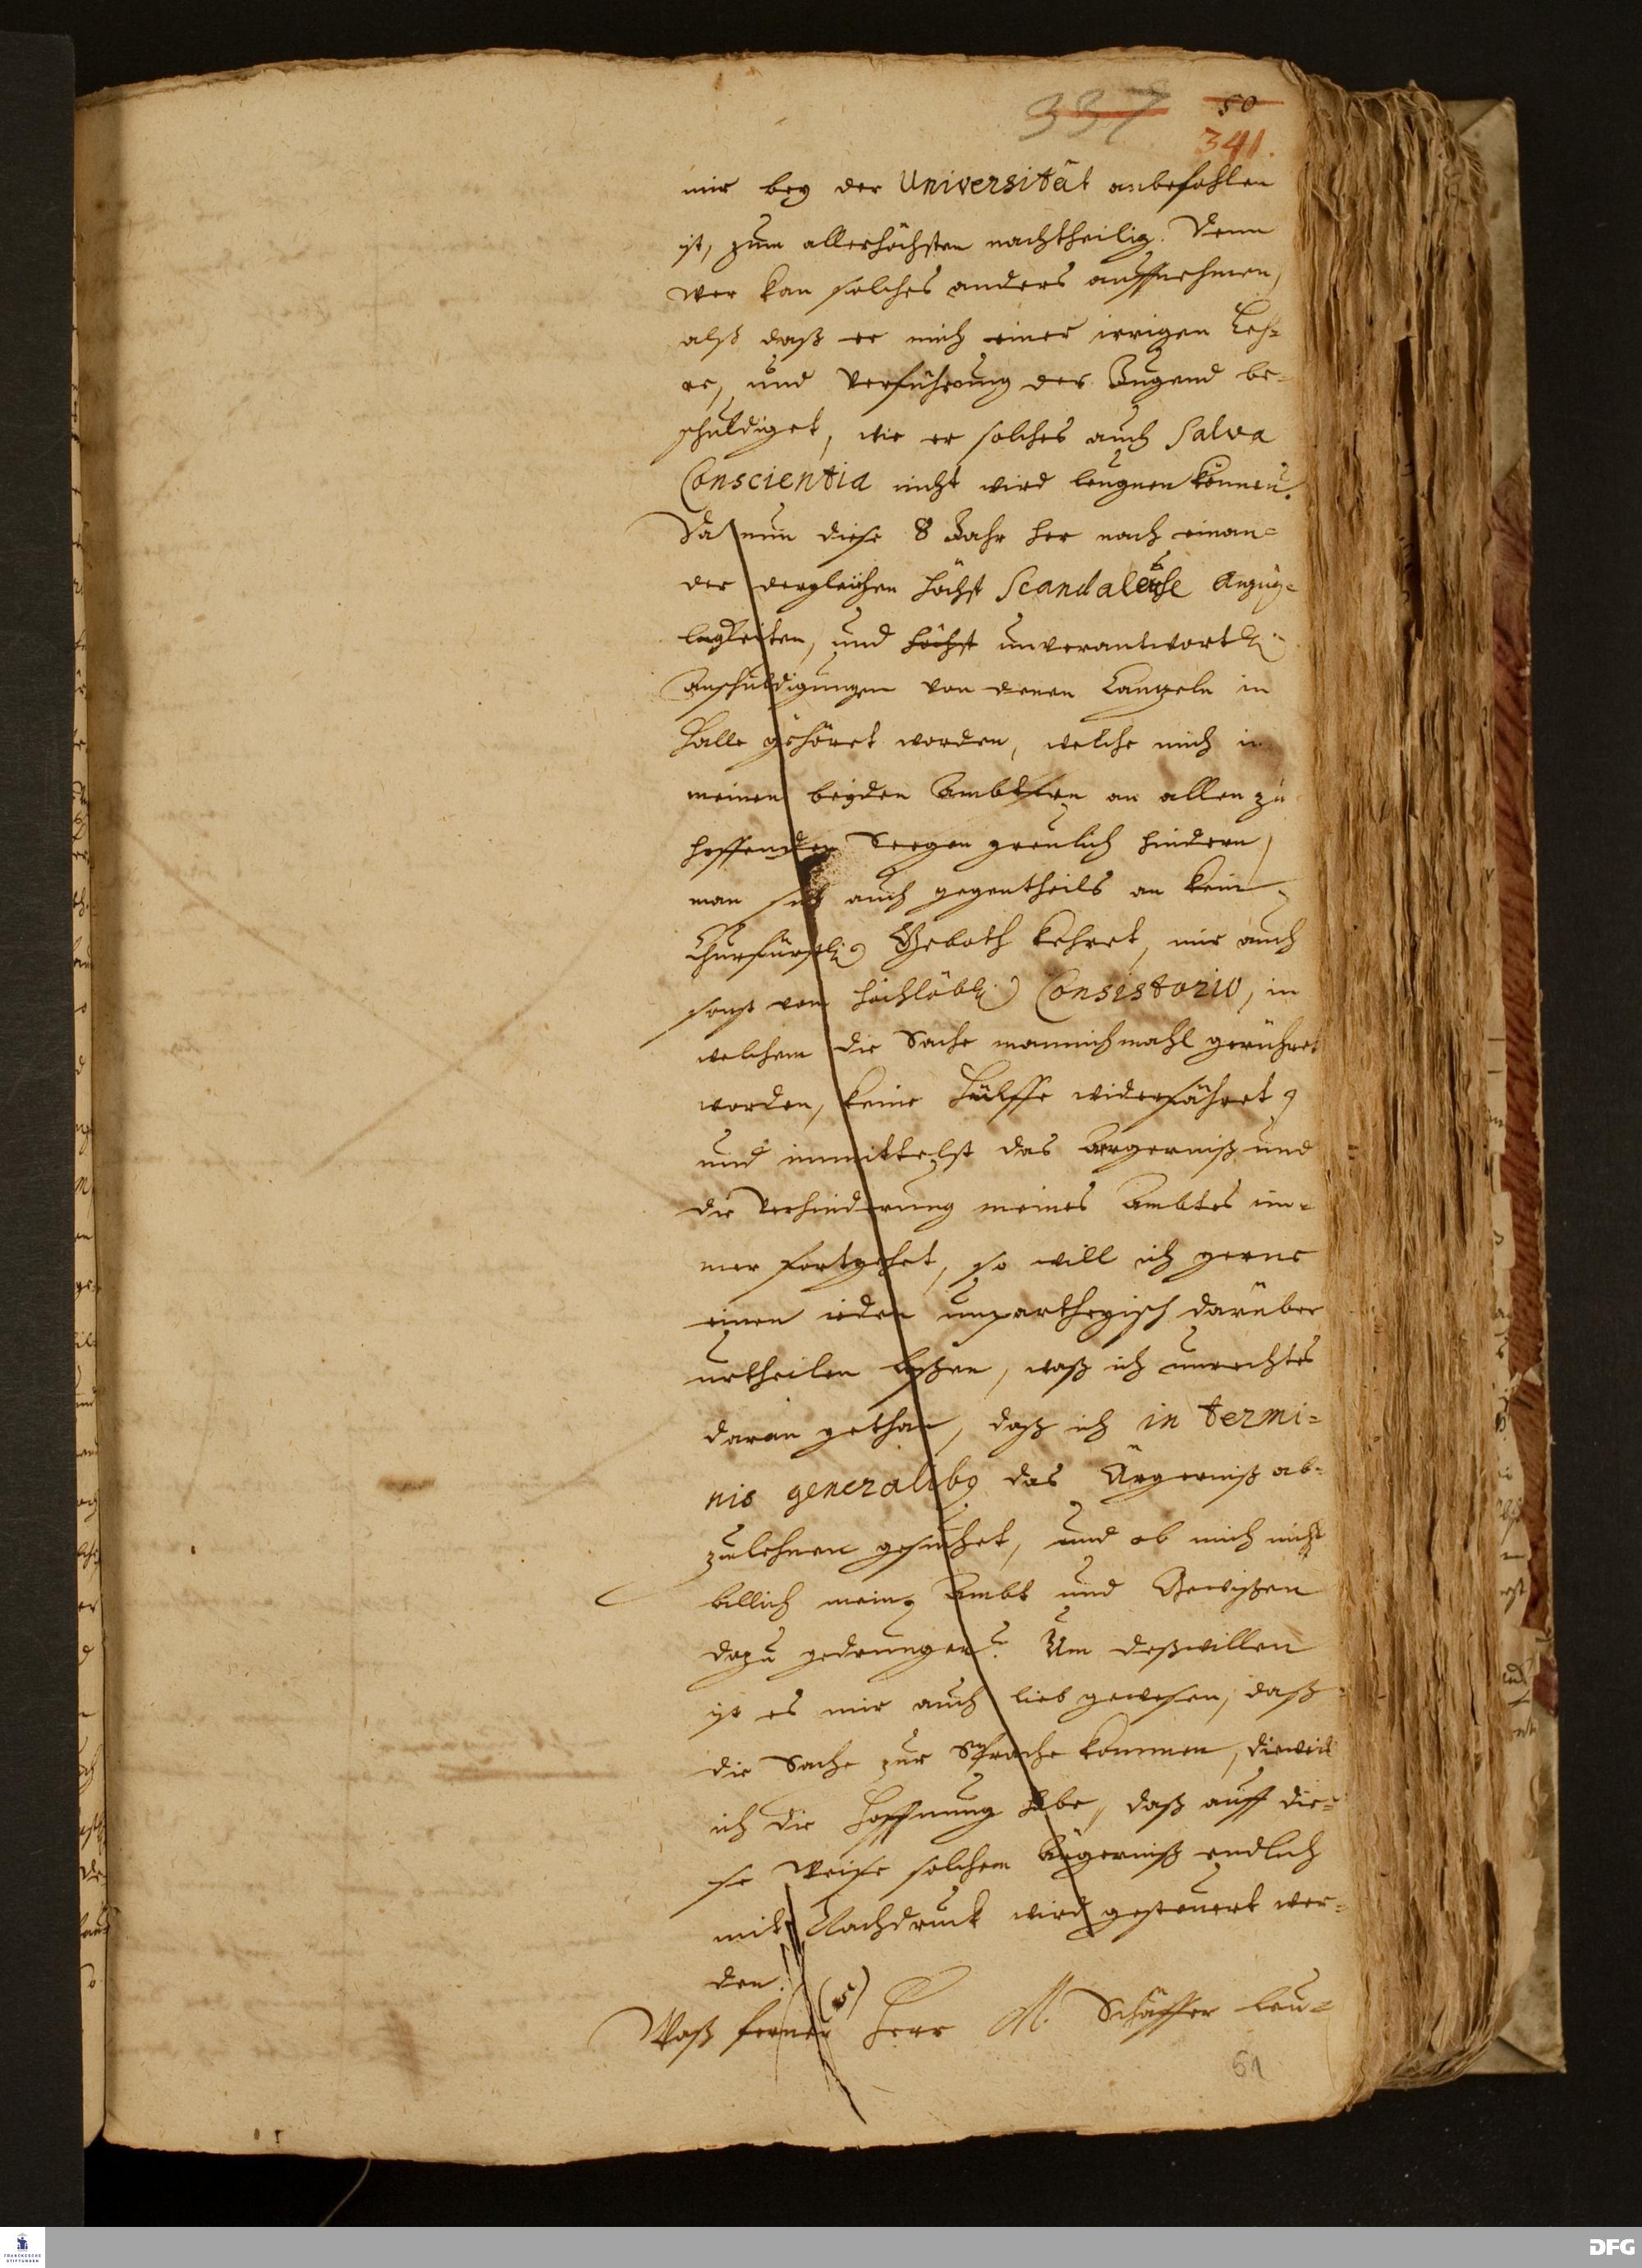 337 50
341.
mir bey der Universität anbefohlen
ist, zum allerhöchsten nachtheilig. Denn
wer kan solches anders auffnehmen,
alß daß er mich einer irrigen Leh=
re, und Verführung der Jugend be=
schuldiget, wie er solches auch Salva
Conscientia nicht wird leugnen können.
Da nun diese 8 Jahr her nach einan=
der dergleichen höchst Scandaleuse Anzüg=
ligkeiten, und höchst unverantwortl.
Anschuldigungen von denen Cantzeln in
Halle gehöret worden, welche mich in
meinen beyden Ambtern an allen zu
hoffenden Seegen greulich hindern,
man sich auch gegentheils an kein
Churfürstl. Geboth kehret, mir auch
sonst vom hochlöbl. Consistorio, in
welchem die Sache mannichmahl gerühret
worden, keine Hülffe widerfähret,
und immittelst das Ärgerniß und
die Verhinderung meines Ambtes im=
mer fortgehet, so will ich gerne
einen ieden unpartheyisch darüber
urtheilen laßen, waß ich unrechtes
daran gethan, daß ich in termi=
nis generalibq das Ärgerniß ab=
zulehnen gesuchet, und ob mich nicht
billich mein Ambt und Gewißen
dazu gedrungen? Um deßwillen
ist es mir auch lieb gewesen, daß
die Sache zur Sprache kommen, dieweil
ich die Hoffnung habe, daß auff die=
se Weise solchem Ärgerniß endlich
mit Nachdruck wird gesteuert wer=
den.
(5)
Waß ferner Herr M. Schäffer leu=
61
FRANCKESCHE
STIFTUNGEN
DFG